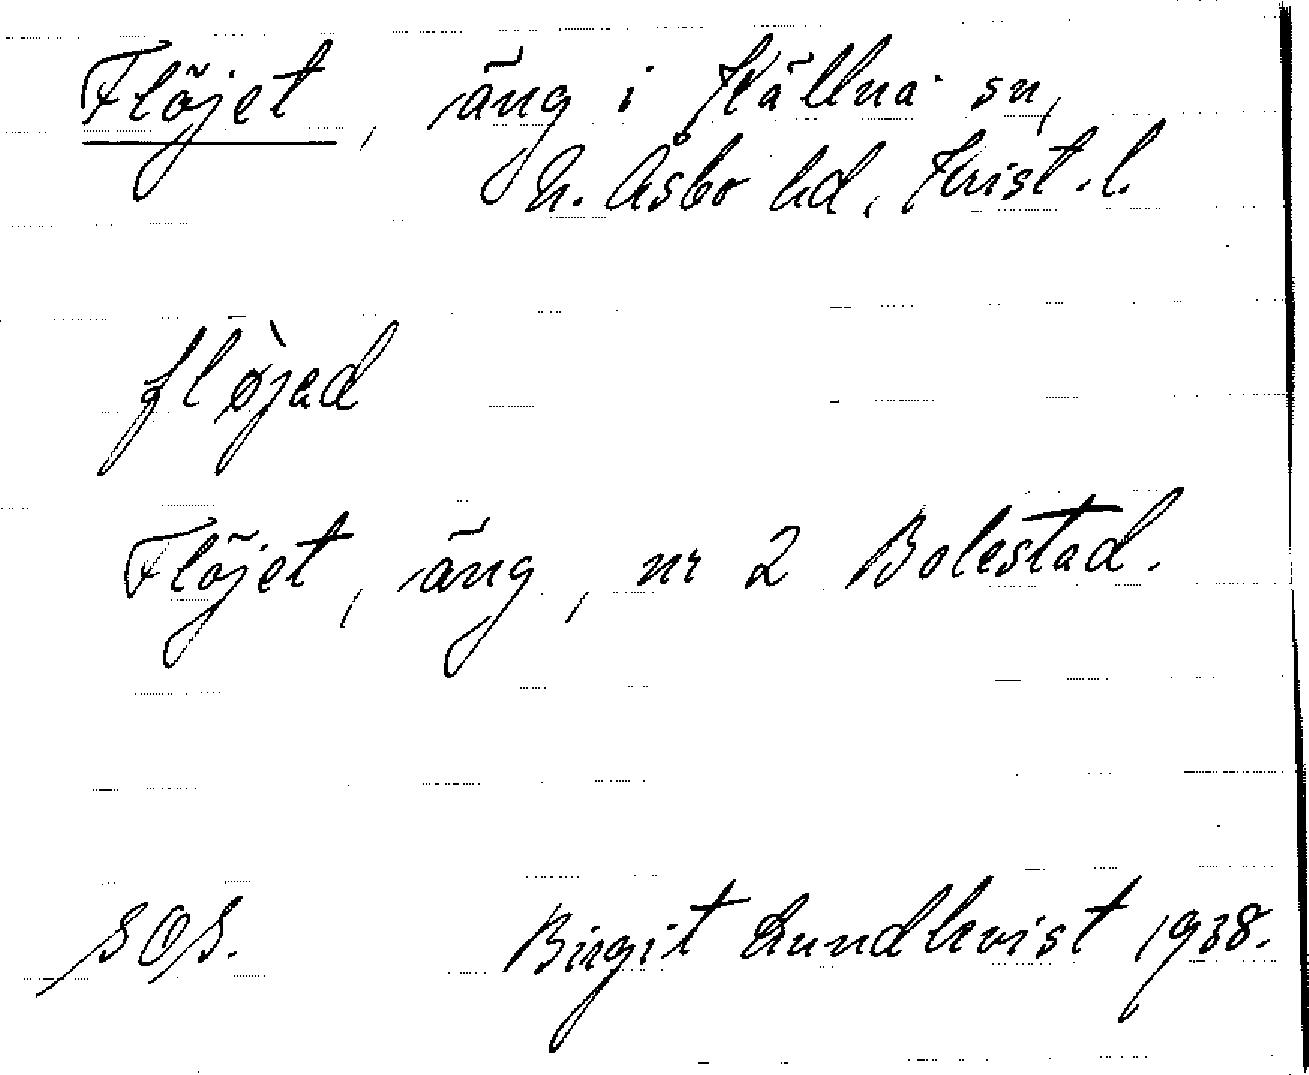 Flöjet, äng i Källna sn,
N. Åsbo hd, Krist. l.
flø̀jad
Flöjet, äng, nr 2 Bolestad.
SOS. Birgit Lundkvist 1938.